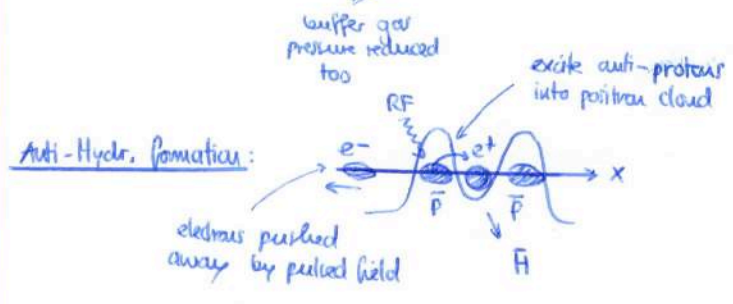 buffer gas
pressure reduced
too
excite anti-protons
into positron cloud
RF
Anti-Hydr. formation:
e-
e+
x
p̄
p̄
electrons pushed
away by pulsed field
H̄